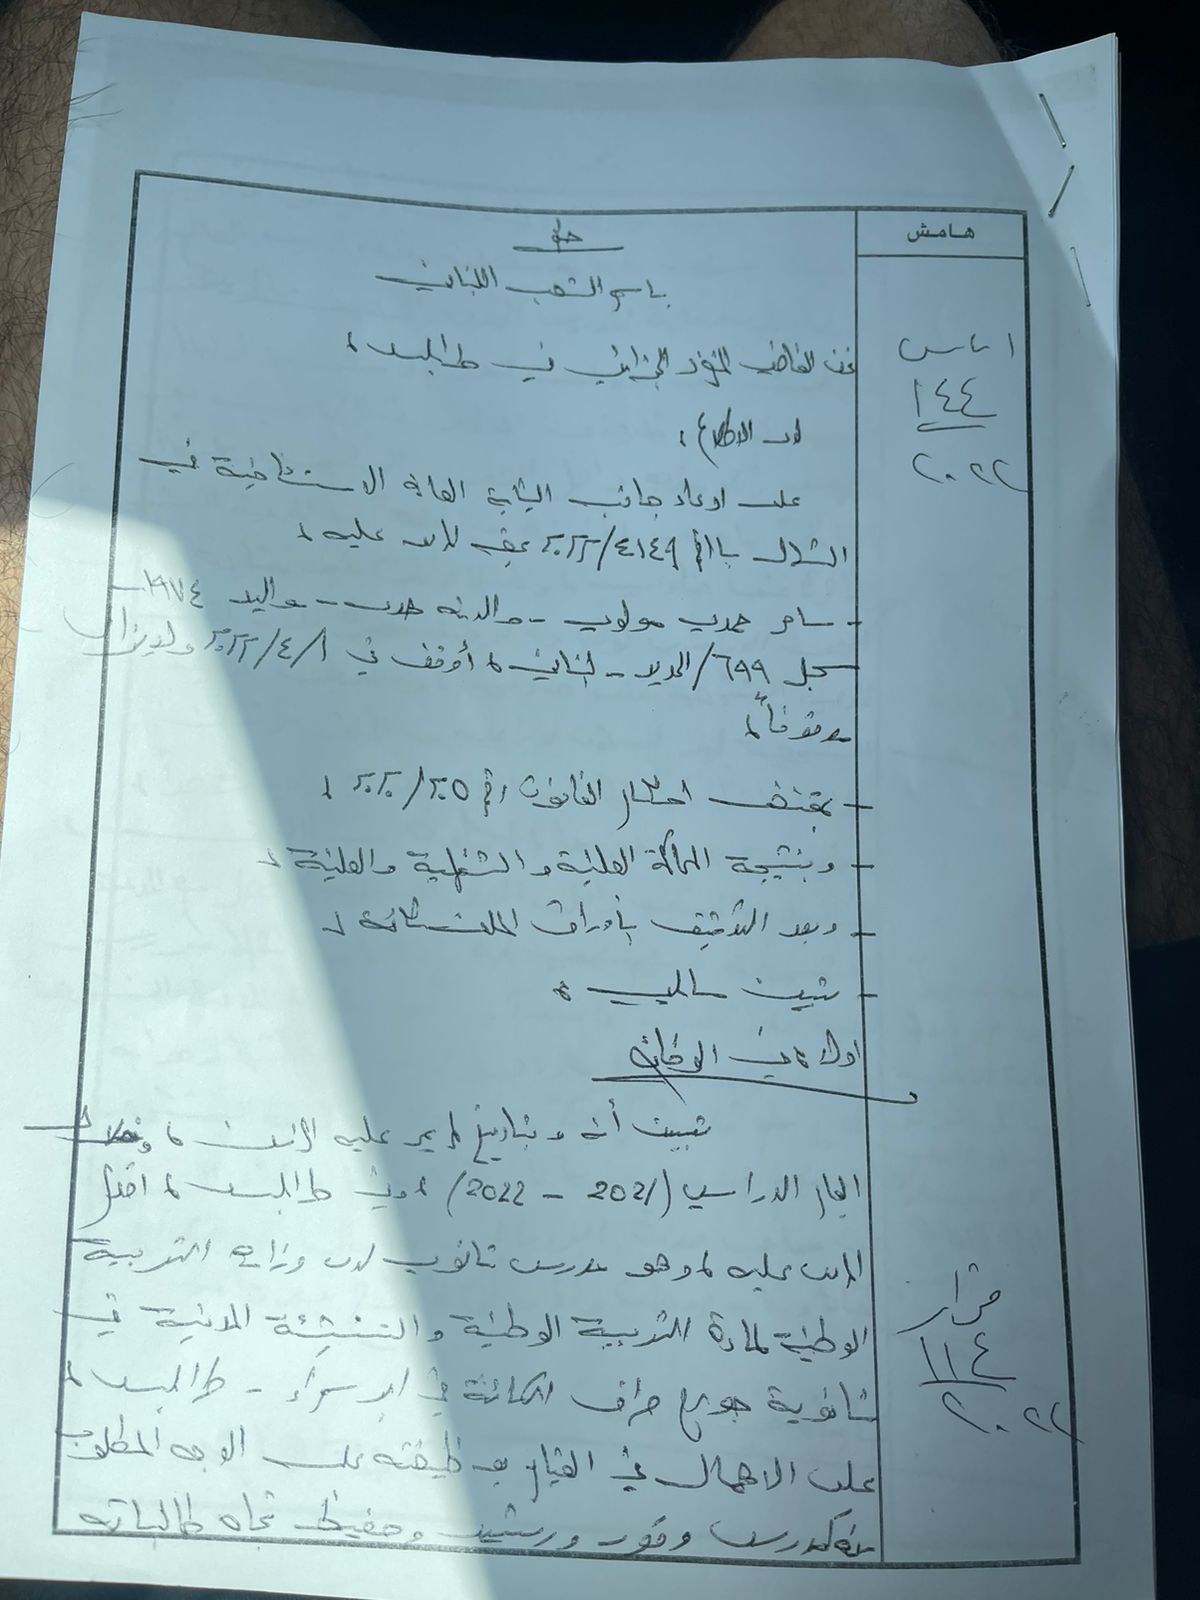 هامش
حكم
باسم الشعب اللبناني
اساس
١٤٤
٢٠٢٢
نحن القاضي المنفرد الجزائي في طرابلس،
لدى الاطلاع،
على ادعاء جانب النيابة العامة الاستئنافية في
الشمال بالرقم ٤١٤٩/٢٠٢٢ بحق المدعى عليه،
- سامر حمدي مولوي - والدته هدى - مواليد ١٩٧٤ -
سجل ٦٩٩/الحديد - لبناني، أوقف في ٢٠٢٢/٤/١ ولا يزال
موقوفاً،
- بمقتضى احكام القانون رقم ٢٠٥/٢٠٢٠،
- وبنتيجة المحاكمة العلنية والشفهية والعلنية،
- وبعد التدقيق بأوراق الملف كافة،
- تبين ما يلي:
اولاً: في الوقائع
تبين أنه وبتاريخ لم يمر عليه الزمن، وخلال
العام الدراسي (2021 - 2022)، وفي طرابلس، اقدم
المدعى عليه، وهو مدرس ثانوي لدى وزارة التربية
الوطنية لمادة التربية الوطنية والتنشئة المدنية في
ثانوية جورج صراف الكائنة في ابي سمراء - طرابلس،
على الاهمال في القيام بوظيفته على الوجه المطلوب
منه كمدرس وقور ورشيد وحفيظ تجاه طالباته
قرار
١١٤
٢٠٢٢